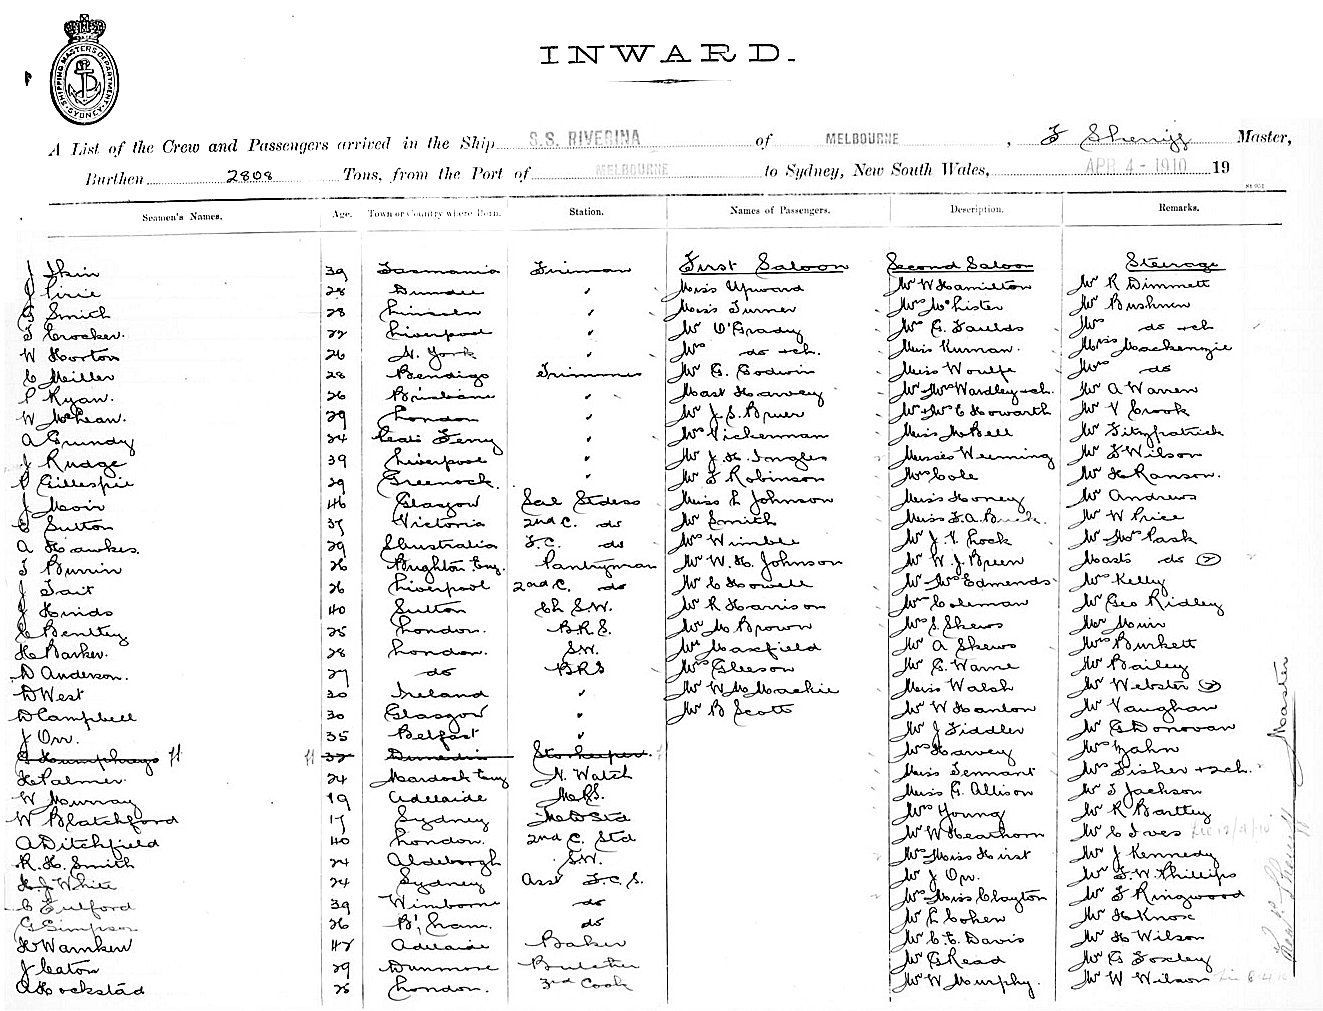 SHIPPING MASTER'S DEPARTMENT SYDNEY
INWARD.
A List of the Crew and Passengers arrived in the Ship S.S. RIVERINA of MELBOURNE, F Master,
Burthen 2808 Tons, from the Port of MELBOURNE to Sydney, New South Wales, APR 4 - 1910 19
Seamen's Names. Age. Town or Country where Born. Station. Names of Passengers. Description. Remarks.
J 39 Tasmania Fireman First Saloon Second Saloon Steerage
J Pirie 28 Dundee " Miss Upward Mr W Hamilton Mr R Dimmett
G Smith 28 " Miss Turner Mrs Mr Bushnen
T Crocker. 22 Liverpool " Mr O'Grady Mrs G. Faulds Mrs do + ch
W Horton 26 N. York " Mrs do + ch. Miss Kurnan. Miss Mackenzie
C Miller 28 Bendigo Trimmer Mr G. Godwin Miss Woulfe Mrs do
P Ryan. 26 Brisbane " Mast Harvey Mr Mrs Wardley + ch. Mr A Warren
W McLean. 29 London " Mr J. S. Bruer Mr + Mrs C Howarth Mr V Crook
A Grundy 24 Ferry " Mrs Vickerman Miss McBell Mr Fitzpatrick
J Rudge 39 Liverpool " Mr J. H. Ingles Misses Weeming Mr F Wilson
P Gillespie 29 Greenock. " Mr F Robinson Mrs Cole Mr H Ranson.
J Moir 46 Glasgow Miss L Johnson Miss Honey Mr Andrews
C Sutton 37 Victoria 2nd C. do Mr Smith Miss F. A. Buck. Mr W Price
A Hawkes. 29 F.C. do Mrs Wimble Mr J. V. Lock Mr Mrs Pask
T Burrin 26 Brighton Eng. Pantryman Mr W. H. Johnson Mr W. J. Breen Masts do (2)
J Tait 26 Liverpool 2nd C. do Mr C Howell Mr Mrs Edmends Mrs Kelly
J Hinds 40 Sutton Ch S.W. Mr R Harrison Mrs Coleman Mr Geo Ridley
C Bentley 25 London. B.R.S. Mr M Brown Mrs S. Skews Mr Muir
H Barker. 28 London. S.W. Mr Maxfield Mr A Skews Mrs Burkett
D Anderson. 27 do B.R.S Mrs Gleeson Mr G. Warne Mr Bailey
D West 30 Ireland " Mr W M Mackie Miss Walsh Mr Webster (2)
D Campbell 30 Glasgow " Mr B Scott Mr W Hanlon Mr Vaughan
J Orr. 35 Belfast " Mr J Fiddler Mr G Donovan
Humphrys 32 Dunedin Storkeeper Mrs Harvey Mrs Zahn
H Palmer. 24 Eng N. Watch Miss Tennant Mrs Fisher + 2 ch.
W Murray 19 Adelaide M.R.S. Miss G. Allison Mr T Jackson
W Blatchford 17 Sydney Mrs Young Mr R Bartley
A Ditchfield 40 London. 2nd C. Std Mr W Hearthorn Mr C Ives
R. H. Smith 24 Aldeborgh S.W. Mrs Miss Hirst Mr J Kennedy
H. J White 24 Sydney Asst F.C.S. Mr J Orr. Mr F. W. Phillips
C Fulford 39 Wimborne do Mrs Miss Clayton Mr F Ringwood
G Simpson 26 B'ham. do Mr L Cohen Mr H Knox
H Warnken 42 Adelaide Baker Mr C. E. Davis Mr H Wilson
J Eaton 29 Dunmore Butcher Mr G Read Mr G Foxley
A Hockstad 25 London. 3rd Cook Mr W Murphy. Mr W Wilson
Master